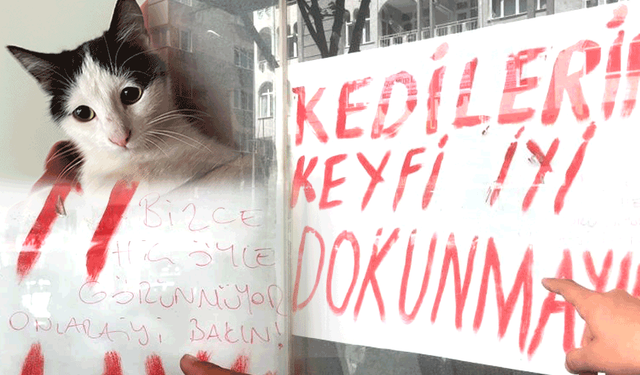 BİZCE
HİÇ ÖYLE
GÖRÜNMÜYOR
ONLARA İYİ BAKIN!
KEDİLERİN
KEYFİ İYİ
DOKUNMAYI